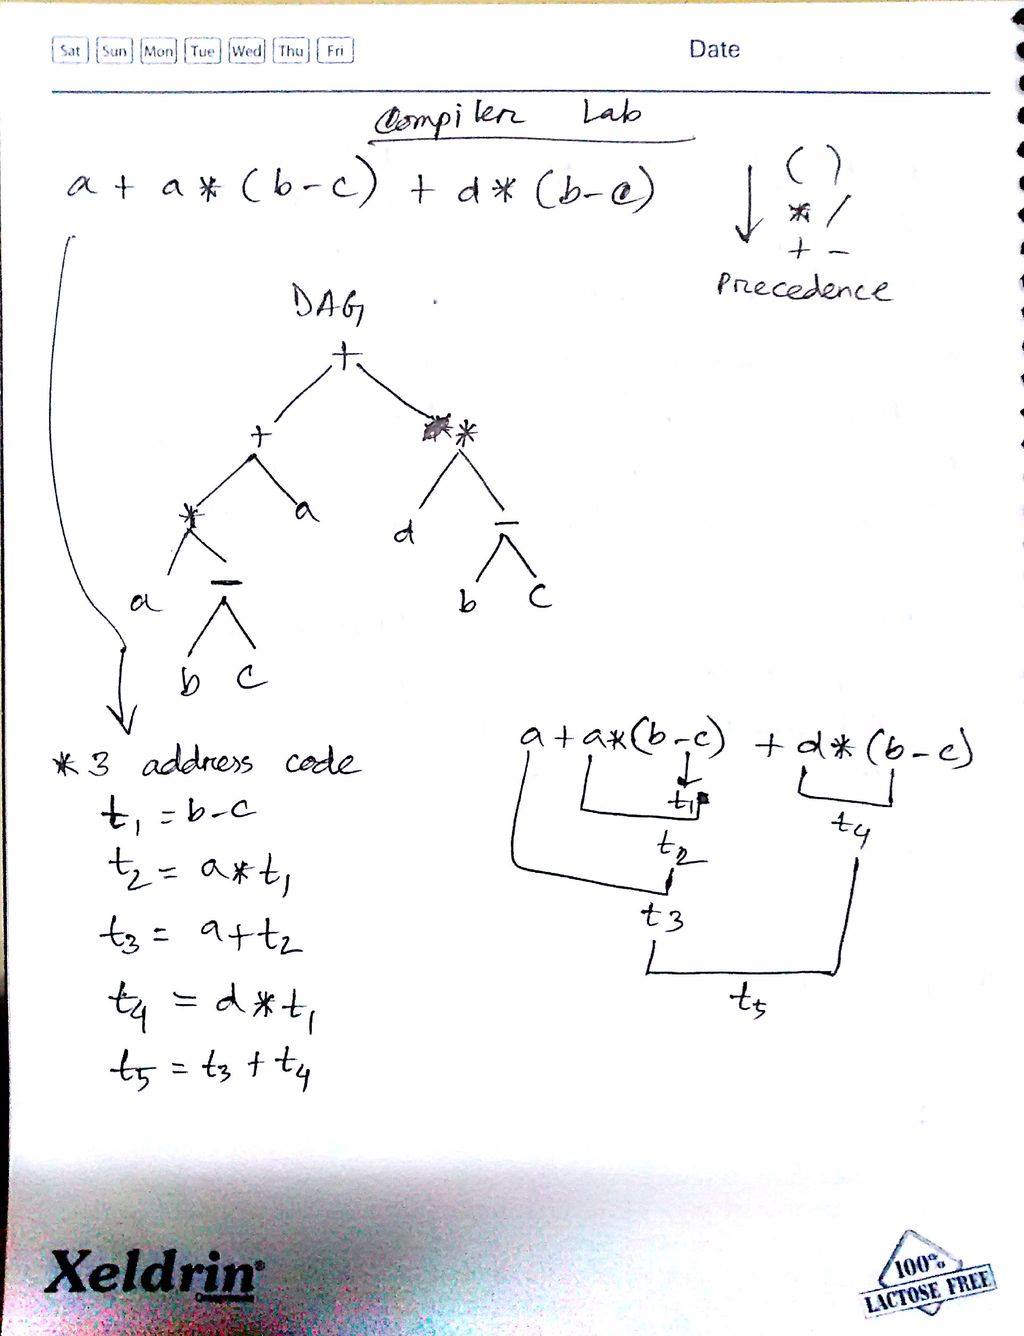 Sat Sun Mon Tue Wed Thu Fri
Date
Compiler Lab
a + a * (b - c) + d * (b - c)
( )
* /
+ -
Precedence
DAG
+
+ *
* a d -
a - b c
b c
* 3 address code
t1 = b - c
t2 = a * t1
t3 = a + t2
t4 = d * t1
t5 = t3 + t4
a + a * (b - c) + d * (b - c)
t1
t4
t2
t3
t5
Xeldrin®
100%
LACTOSE FREE